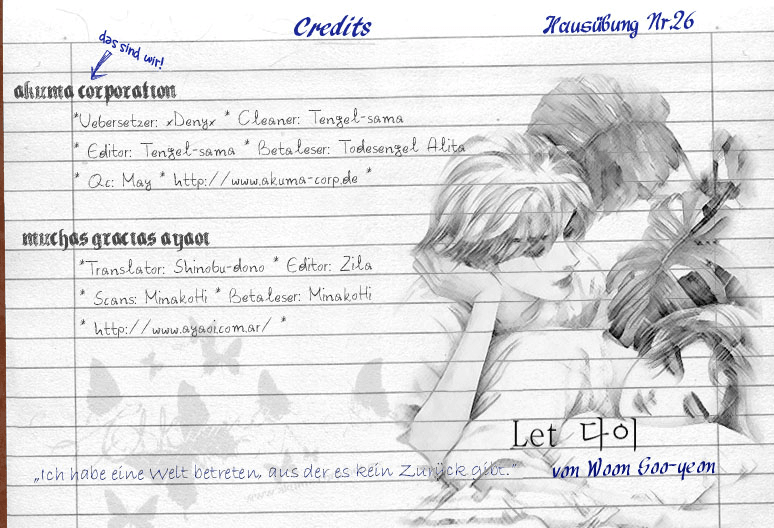 Credits
Hausübung Nr.26
das sind wir!
akuma corporation
*Uebersetzer: xDenyx * Cleaner: Tengel-sama
* Editor: Tengel-sama * Betaleser: Todesengel Alita
* Qc: May * http://www.akuma-corp.de *
muchas gracias ayaoi
*Translator: Shinobu-dono * Editor: Zila
* Scans: MinakoHi * Betaleser: MinakoHi
* http://www.ayaoi.com.ar/ *
Let 다이
von Woon Soo-yeon
„Ich habe eine Welt betreten, aus der es kein Zurück gibt.“